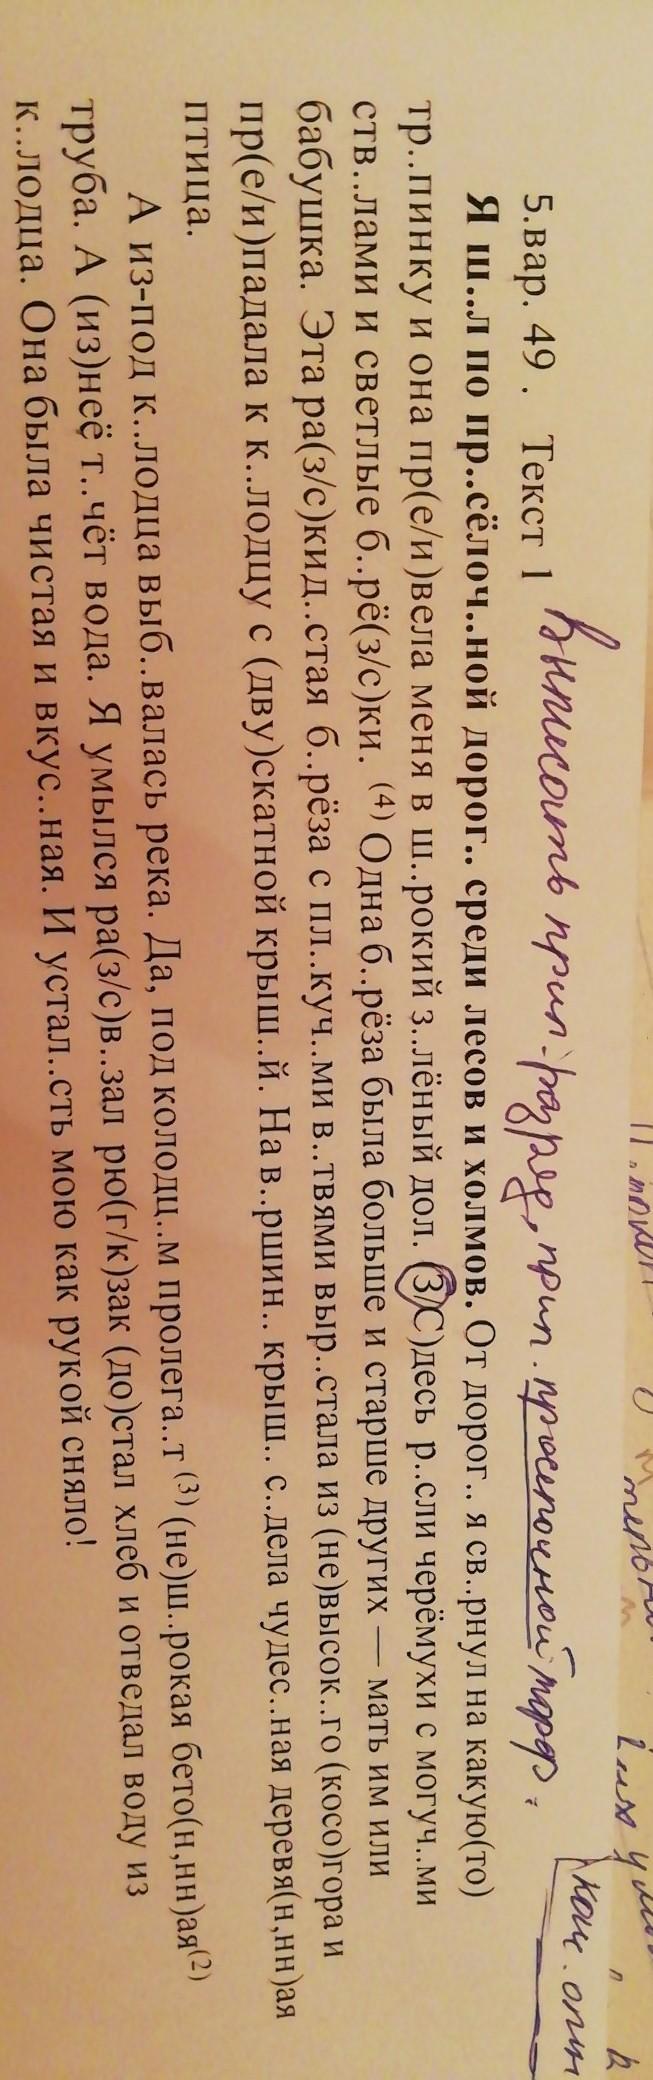 5.вар. 49 . Текст 1 Выписать прил. разряд, прил. просёлочной морф.
Я ш..л по пр..сёлоч..ной дорог.. среди лесов и холмов. От дорог.. я св..рнул на какую(то)
тр..пинку и она пр(е/и)вела меня в ш..рокий з..лёный дол. (З/С)десь р..сли черёмухи с могуч..ми
ств..лами и светлые б..рё(з/с)ки. (4) Одна б..рёза была больше и старше других — мать им или
бабушка. Эта ра(з/с)кид..стая б..рёза с пл..куч..ми в..твями выр..стала из (не)высок..го (косо)гора и
пр(е/и)падала к к..лодцу с (дву)скатной крыш..й. На в..ршин.. крыш.. с..дела чудес..ная деревя(н,нн)ая
птица.
А из-под к..лодца выб..валась река. Да, под колодц..м пролега..т (3) (не)ш..рокая бето(н,нн)ая(2)
труба. А (из)неё т..чёт вода. Я умылся ра(з/с)в..зал рю(г/к)зак (до)стал хлеб и отведал воду из
к..лодца. Она была чистая и вкус..ная. И устал..сть мою как рукой сняло!